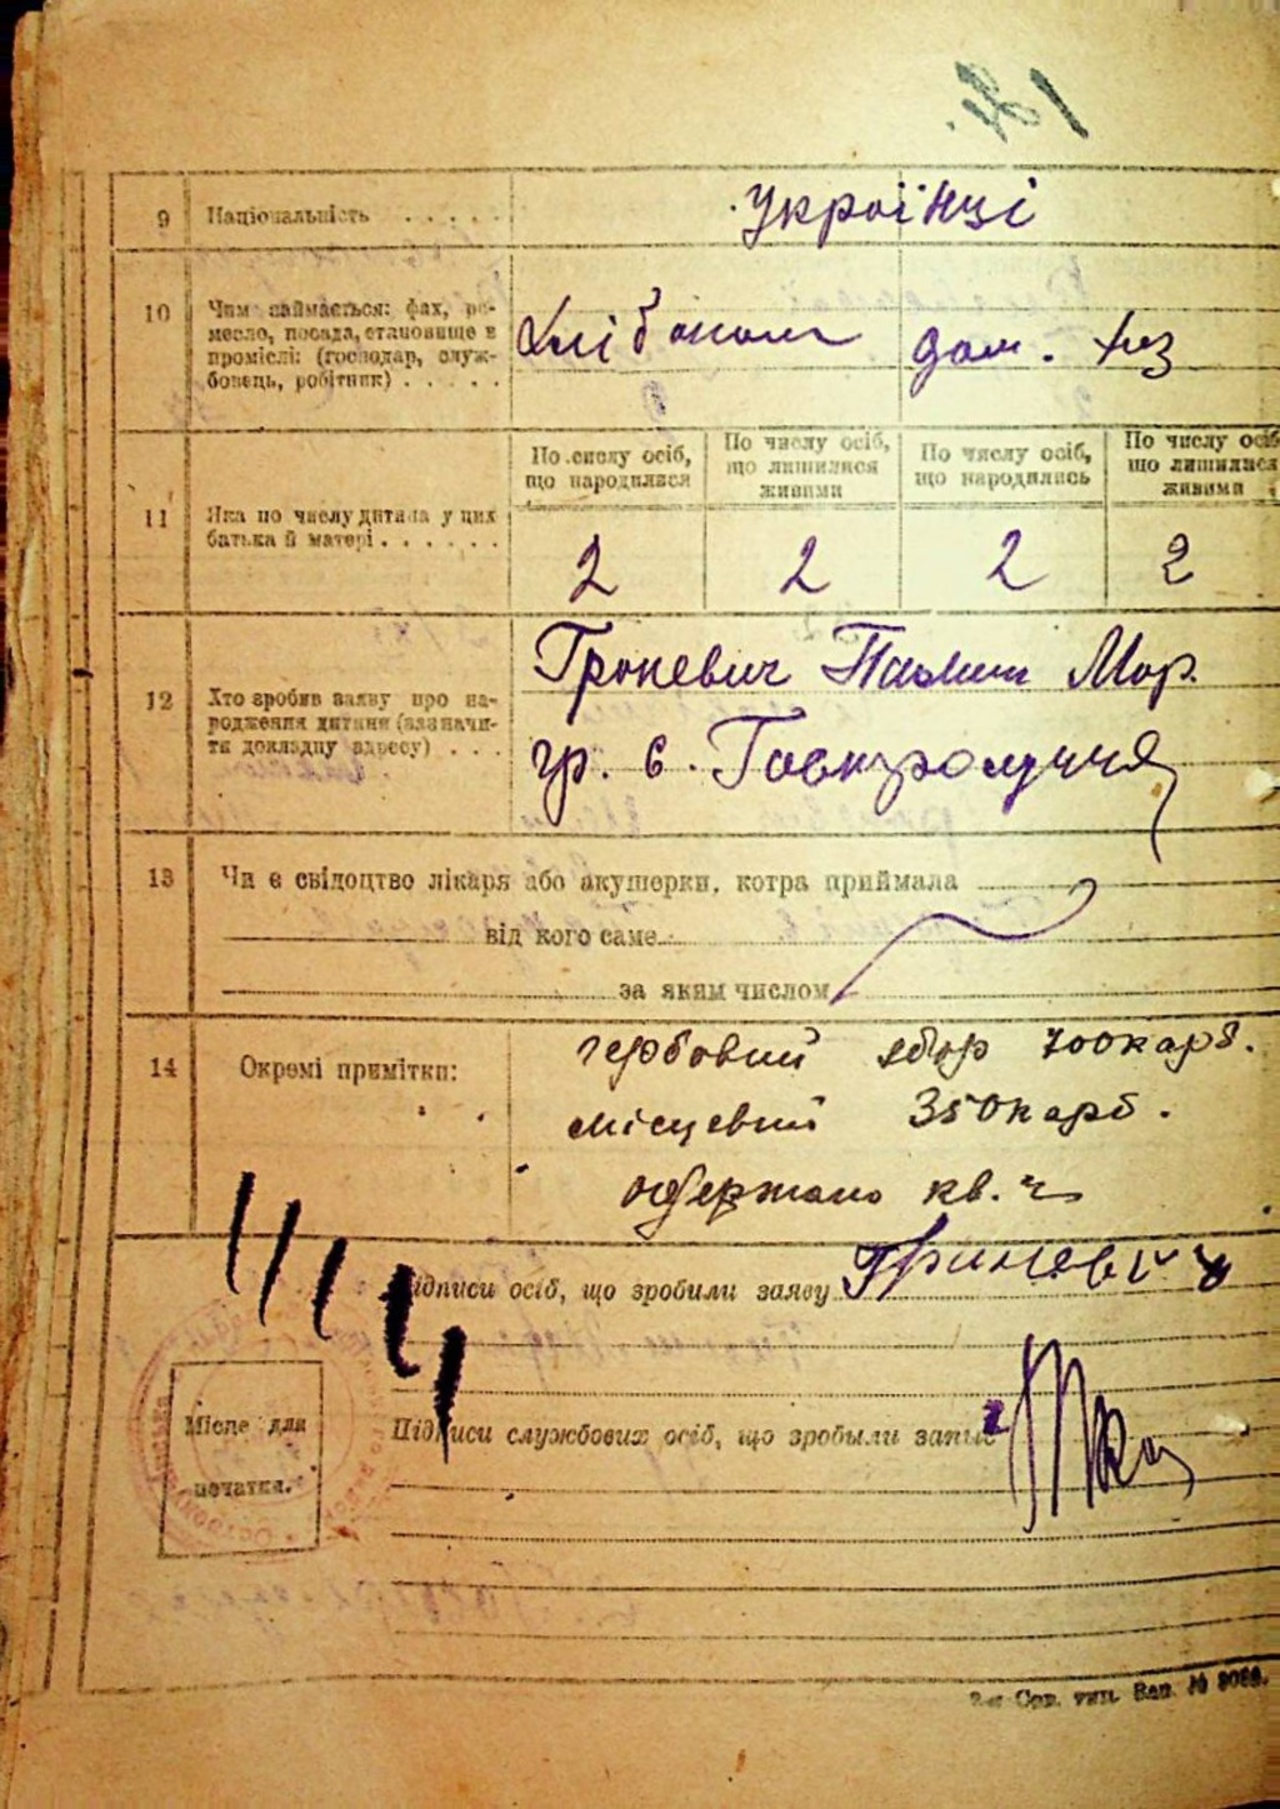 9 Національність . . . . .
Українці
10 Чим займається: фах, ре-
месло, посада, становище в
промислі: (господар, служ-
бовець, робітник) . . . . .
Хлібороб дом. хаз
11 Яка по числу дитина у цих
батька й матері . . . . . .
По числу осіб,
що народилися
По числу осіб,
що лишилися
живими
По числу осіб,
що народились
По числу осіб
що лишилися
живими
2 2 2 2
12 Хто зробив заяву про на-
родження дитини (зазначи-
ти докладну адресу) . . .
Гриневич Мар.
гр. с.
13 Чи є свідоцтво лікаря або акушерки, котра приймала
від кого саме
за яким числом
14 Окремі примітки:
гербовий збір 700 карб.
місцевий 350 карб.
одержано кв. ч
Підписи осіб, що зробили заяву Гриневич
Місце для
печатки.
Підписи службових осіб, що зробыли запис